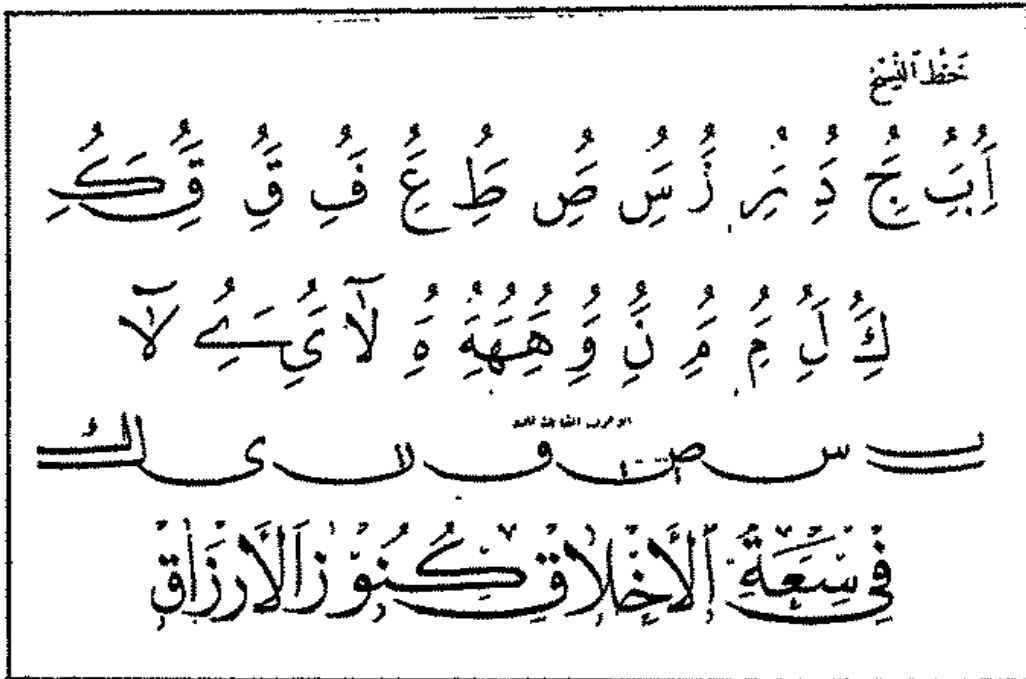 خط النسخ
أ ب ج د ر ز س ص ط ع ف ق ق ك
ك ل م م ن و ه ه ه ه لا ي ے لا
ب س ص ف ں ى ك
في سعة الأخلاق كنوز الأرزاق